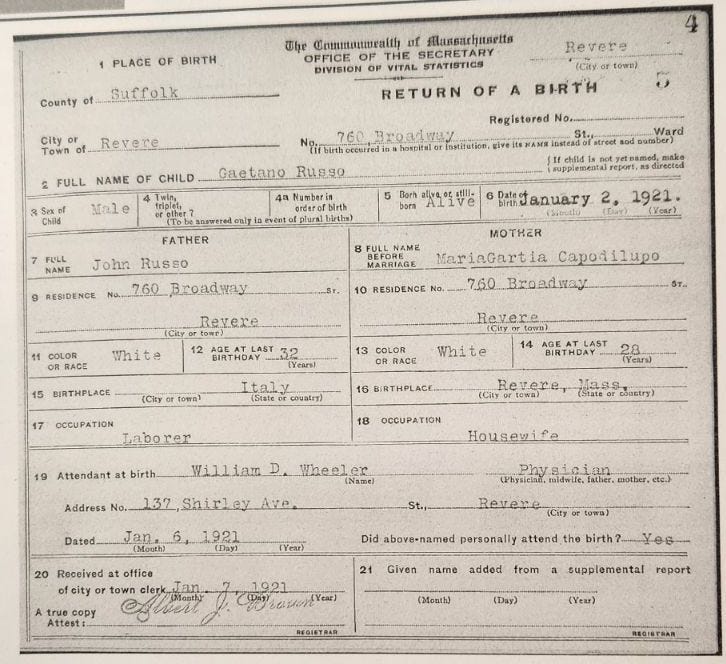 4
The Commonwealth of Massachusetts
OFFICE OF THE SECRETARY
DIVISION OF VITAL STATISTICS
RETURN OF A BIRTH
Revere
(City or town)
5
1 PLACE OF BIRTH
County of Suffolk
Registered No.
City or Town of Revere
No. 760 Broadway St., Ward
(If birth occurred in a hospital or institution, give its NAME instead of street and number)
2 FULL NAME OF CHILD Gaetano Russo
{ If child is not yet named, make supplemental report, as directed
3 Sex of Child Male
4 Twin, triplet, or other?
4a Number in order of birth
(To be answered only in event of plural births)
5 Born alive or still-born Alive
6 Date of birth January 2, 1921.
(Month) (Day) (Year)
FATHER
7 FULL NAME John Russo
9 RESIDENCE No. 760 Broadway St.
Revere
(City or town)
11 COLOR OR RACE White
12 AGE AT LAST BIRTHDAY 32
(Years)
15 BIRTHPLACE Italy
(City or town) (State or country)
17 OCCUPATION
Laborer
MOTHER
8 FULL NAME BEFORE MARRIAGE MariaGartia Capodilupo
10 RESIDENCE No. 760 Broadway St.
Revere
(City or town)
13 COLOR OR RACE White
14 AGE AT LAST BIRTHDAY 28
(Years)
16 BIRTHPLACE Revere, Mass.
(City or town) (State or country)
18 OCCUPATION
Housewife
19 Attendant at birth William D. Wheeler Physician
(Name) (Physician, midwife, father, mother, etc.)
Address No. 137 Shirley Ave. St., Revere
(City or town)
Dated Jan. 6, 1921 Did above-named personally attend the birth? Yes
(Month) (Day) (Year)
20 Received at office
of city or town clerk Jan. 7, 1921
(Month) (Day) (Year)
A true copy
Attest: Albert J. Brown
REGISTRAR
21 Given name added from a supplemental report
(Month) (Day) (Year)
REGISTRAR